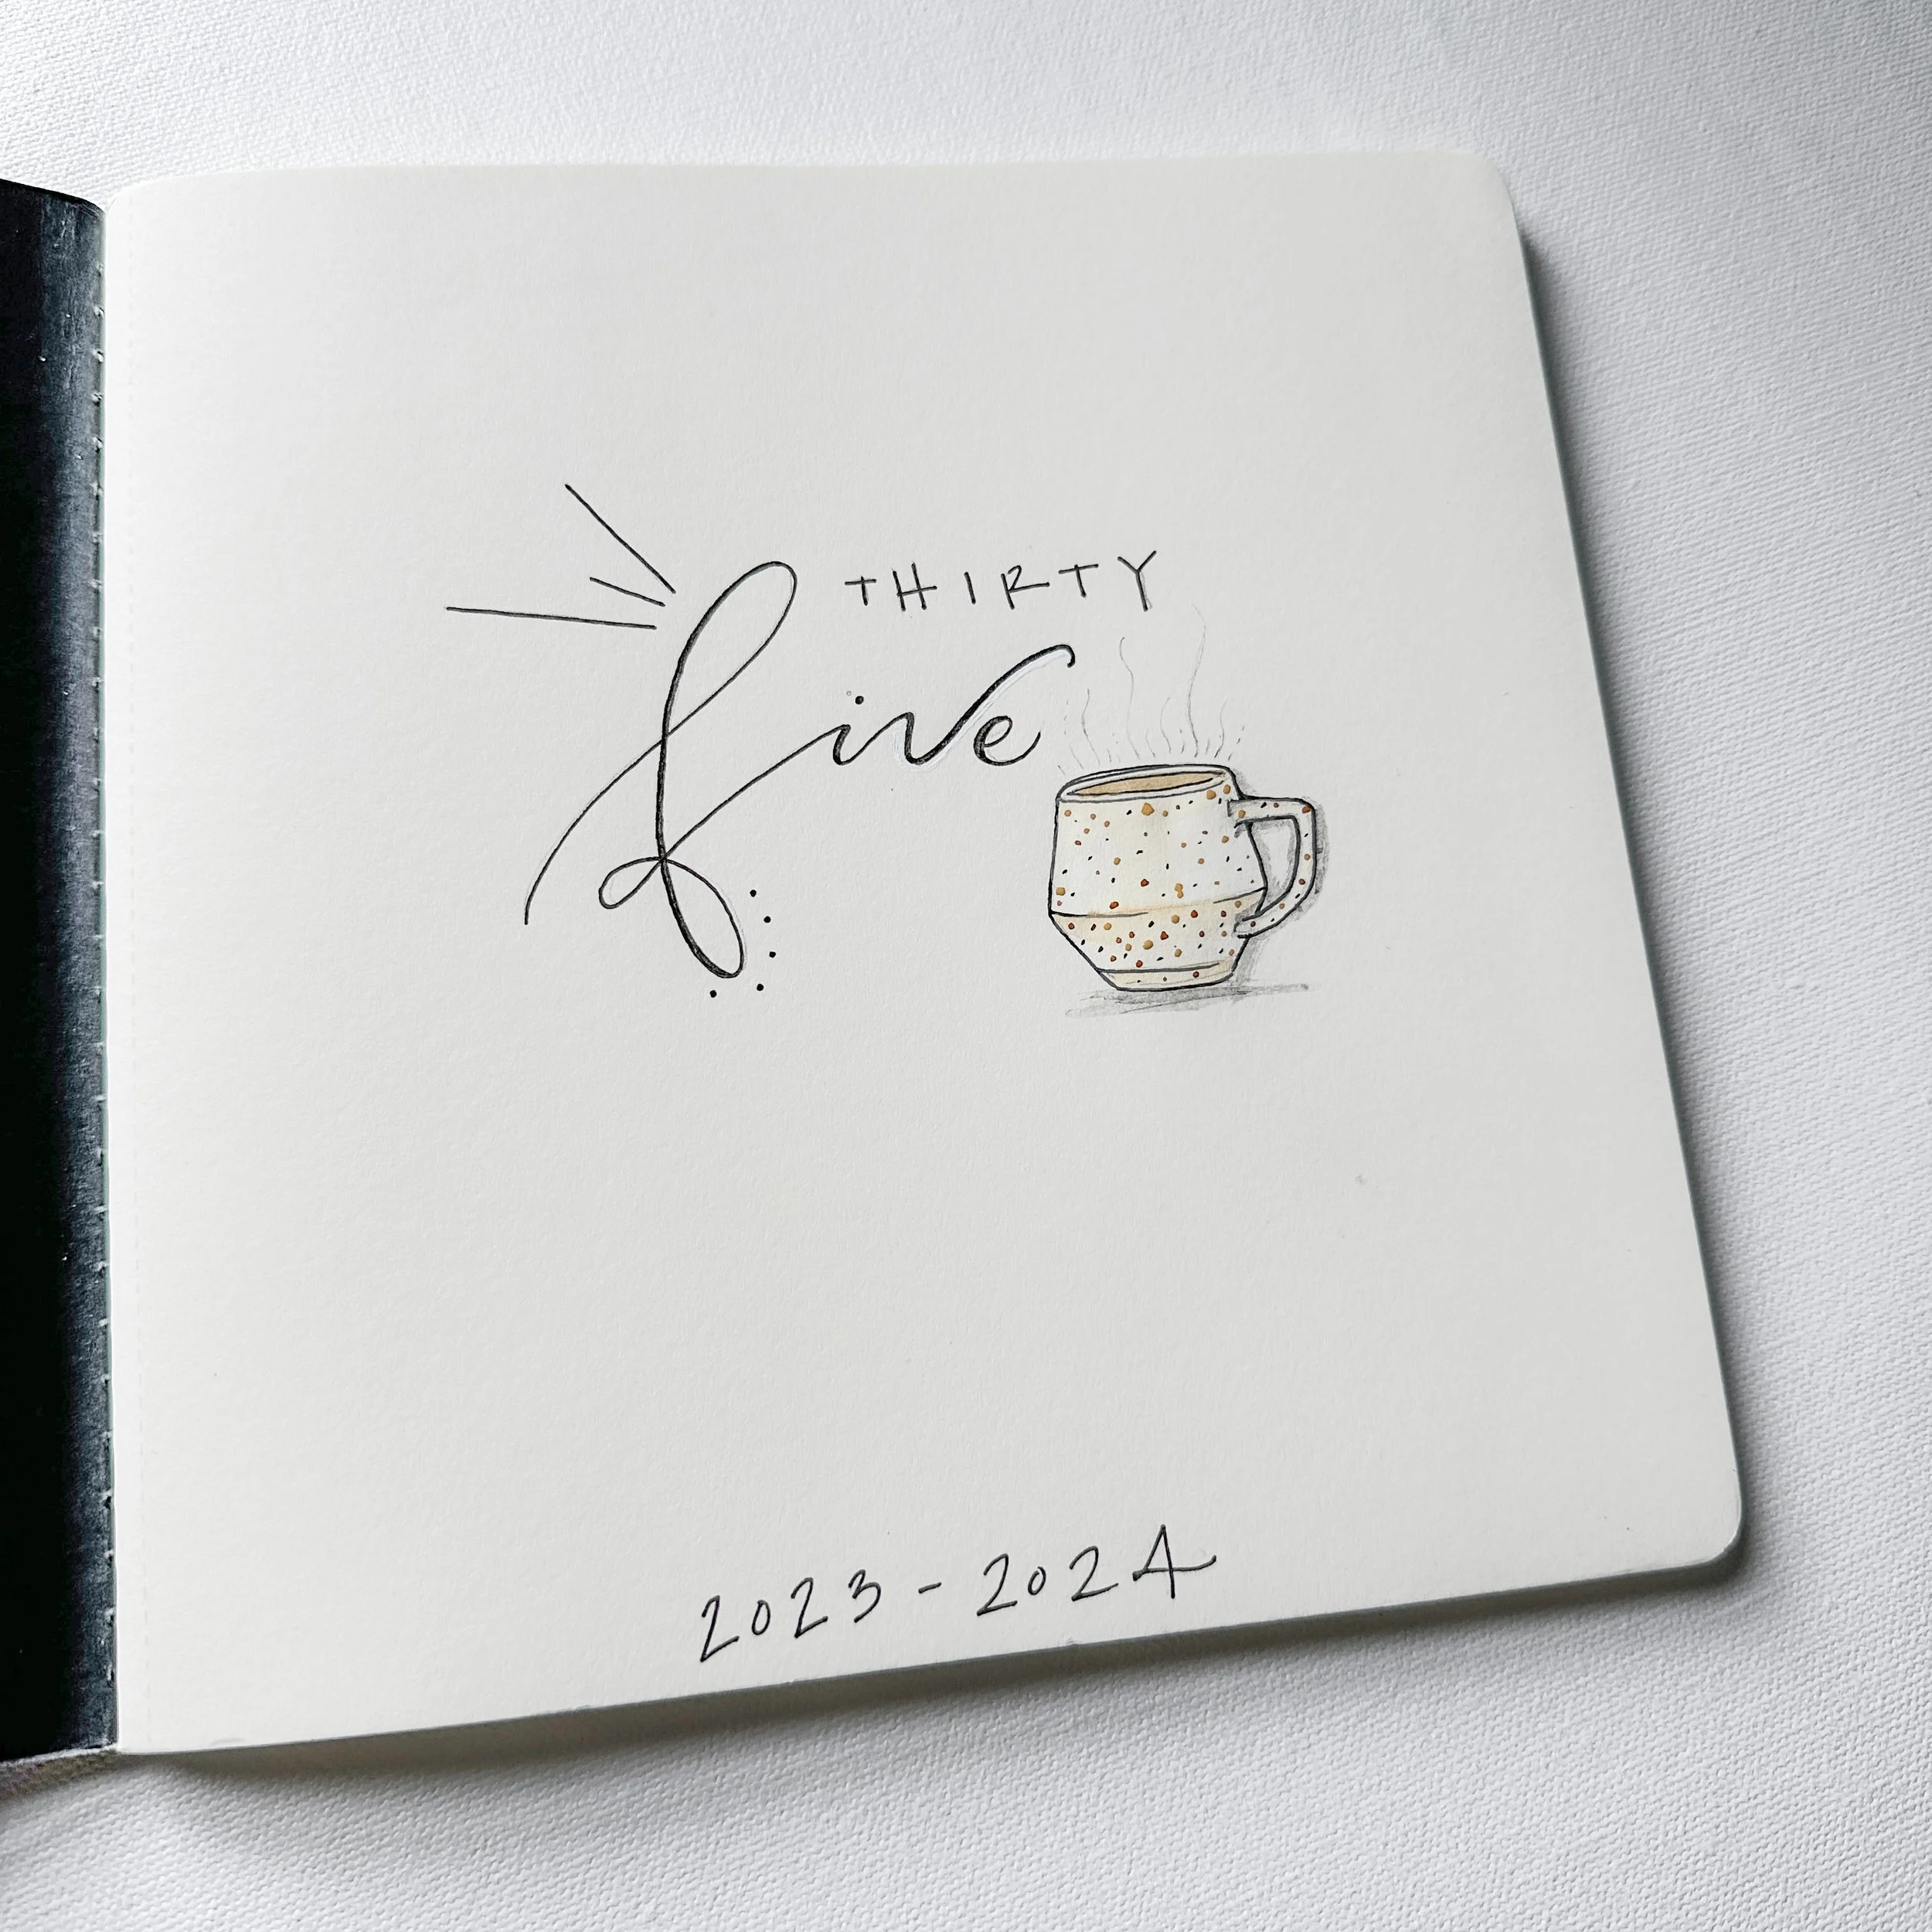 THIRTY
five
2023 - 2024